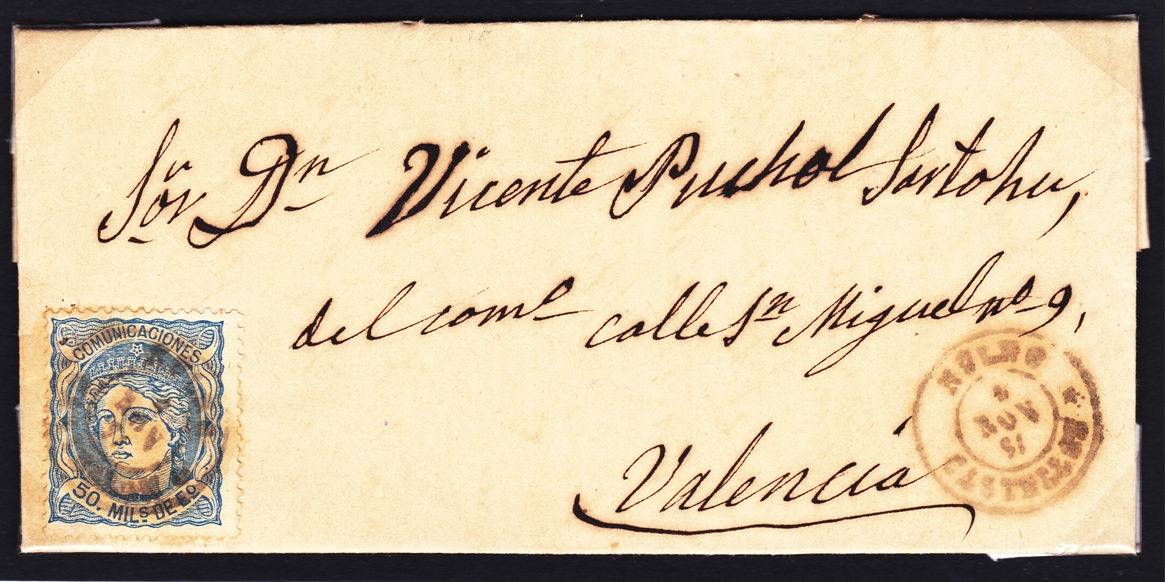 Sor. Dn Vicente Puchol Sartohu,
del come calle Sn Miguel no 9,
Valencia
COMUNICACIONES
50. MILS DE Eo.
NULES
NOV
CASTELLON